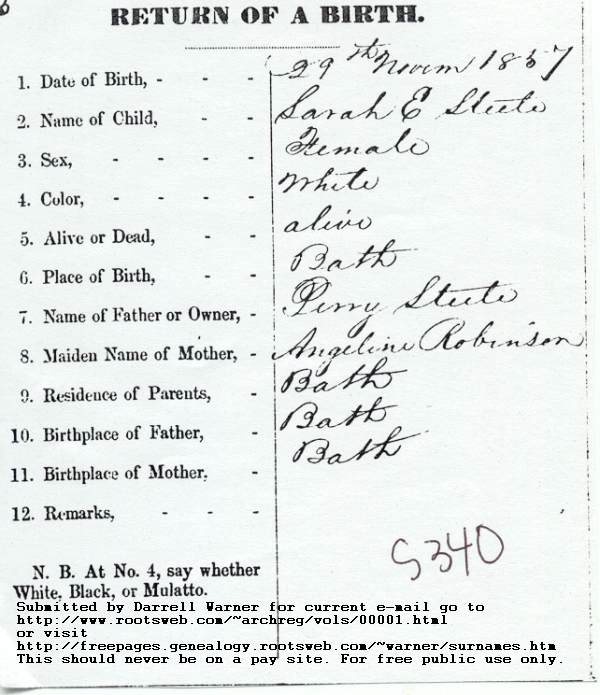 RETURN OF A BIRTH.
1. Date of Birth, - - - 29th Novem 1857
2. Name of Child, - - Sarah E Steele
3. Sex, - - - - Female
4. Color, - - - - White
5. Alive or Dead, - - alive
6. Place of Birth, - - Bath
7. Name of Father or Owner, - Perry Steele
8. Maiden Name of Mother, - Angeline Robinson
9. Residence of Parents, - Bath
10. Birthplace of Father, - Bath
11. Birthplace of Mother, - Bath
12. Remarks, - - -
S340
N. B. At No. 4, say whether
White, Black, or Mulatto.
Submitted by Darrell Warner for current e-mail go to
http://www.rootsweb.com/~archreg/vols/00001.html
or visit
http://freepages.genealogy.rootsweb.com/~warner/surnames.htm
This should never be on a pay site. For free public use only.